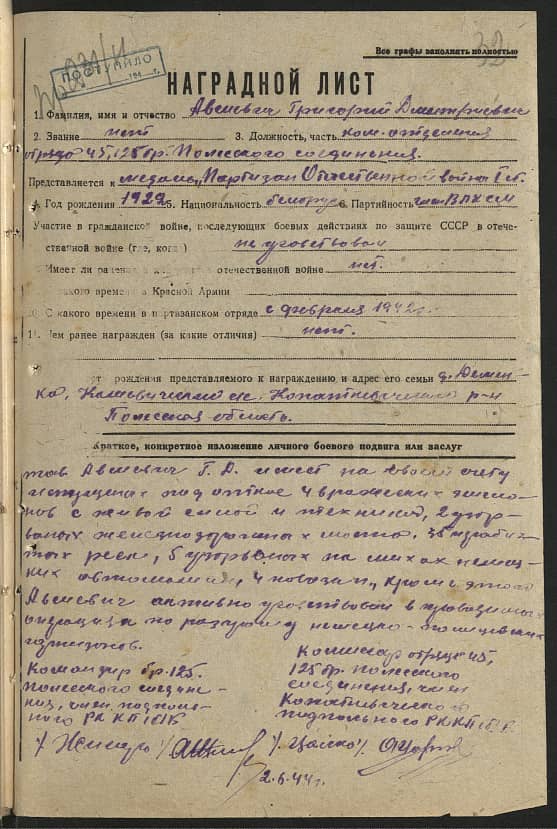 32
Все графы заполнять полностью
ПОСТУПИЛО
НАГРАДНОЙ ЛИСТ
1. Фамилия, имя и отчество Григорий Дмитриевич
2. Звание нет 3. Должность, часть ком. отделения
отряда 45, 125 бр. Полесского соединения.
Представляется к медали "Партизан Отечественной войны I ст.
4. Год рождения 1922 5. Национальность белорус 6. Партийность член ВЛКСМ
Участие в гражданской войне, последующих боевых действиях по защите СССР в отече-
ственной войне (где, когда) не участвовал
Имеет ли ранения в отечественной войне нет.
какого времени в Красной Армии
С какого времени в партизанском отряде с февраля 1942 г.
11. Чем ранее награжден (за какие отличия) нет.
рождения представляемого к награждению и адрес его семьи д.
Копаткевичский р-н
Полесская область.
Краткое, конкретное изложение личного боевого подвига или заслуг
тов. Г. Д. имеет на своем счету
под откос 4 вражеских эшело-
нов с живой силой и техникой, 2 взор-
ваных железнодорожных моста, 35
тых рельс, 5 на минах немец-
ких автомашин, 4 повозки, кроме этого
активно участвовал в проводимых
операциях по разгрому немецко-полицейских
гарнизонов.
Командир бр. 125
полесского соедине-
ния, член подполь-
ного РК КП(б)Б
Комиссар отряда 45,
125 бр. полесского
соединения, член
Копаткевичского
подпольного РККП(б)Б
2.6.44 г.